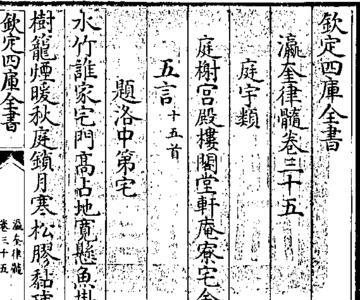 欽定四庫全書
瀛奎律髓卷三十五
庭宇類
庭榭宫殿樓閣堂軒庵寮宅舍
五言十五首
題洛中第宅
水竹誰家宅門髙占地寛懸魚掛
樹籠煙暖秋庭鎖月寒松膠黏琥
欽定四庫全書
瀛奎律髓
卷三十五